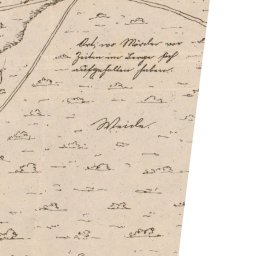 Ort, wo Mörder vor
Zeiten im Berge sich
aufgehalten haben.
Weide.